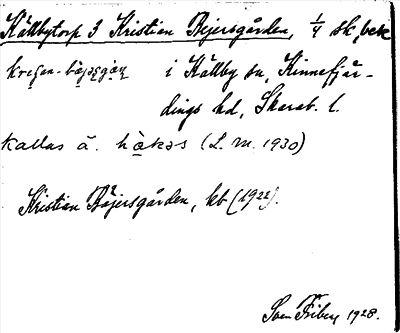 Källbytorp 3 Kristian Bejersgården, 1/4 sk, bek
i Källby sn, Kinnefjär-
dings hd, Skarab. l.
kallas ä. håkəs (L. m. 1930)
Kristian Böjersgården, kb (1922).
Sven Friberg 1928.